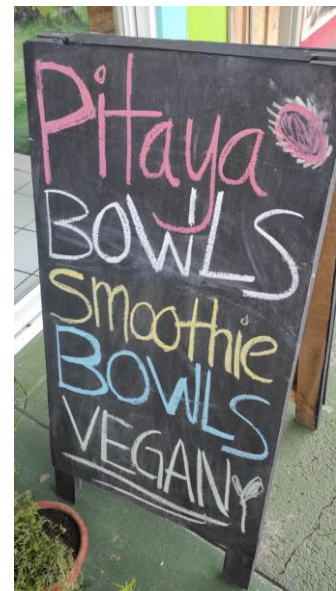 Pitaya
BOWLS
Smoothie
BOWLS
VEGAN